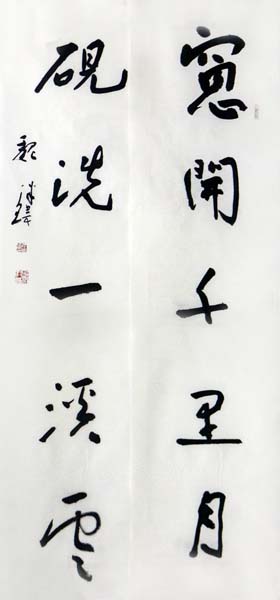 窻開千里月
硯洗一溪雲